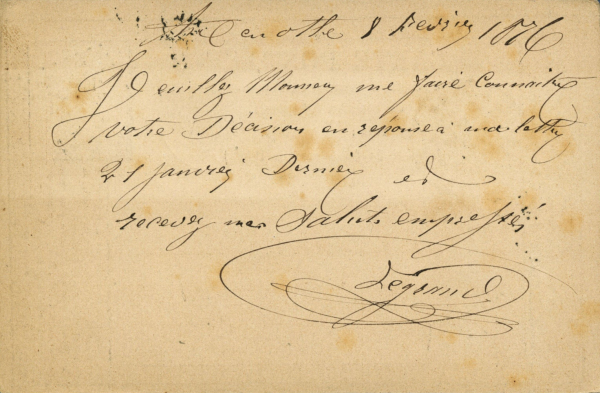 en othe 8 Fevrier 1876
Veuillez Monsieur me faire Connaitre
votre Décision en réponse à ma lettre
21 Janvier Dernier et
recevez mes Saluts empressés
Legrand